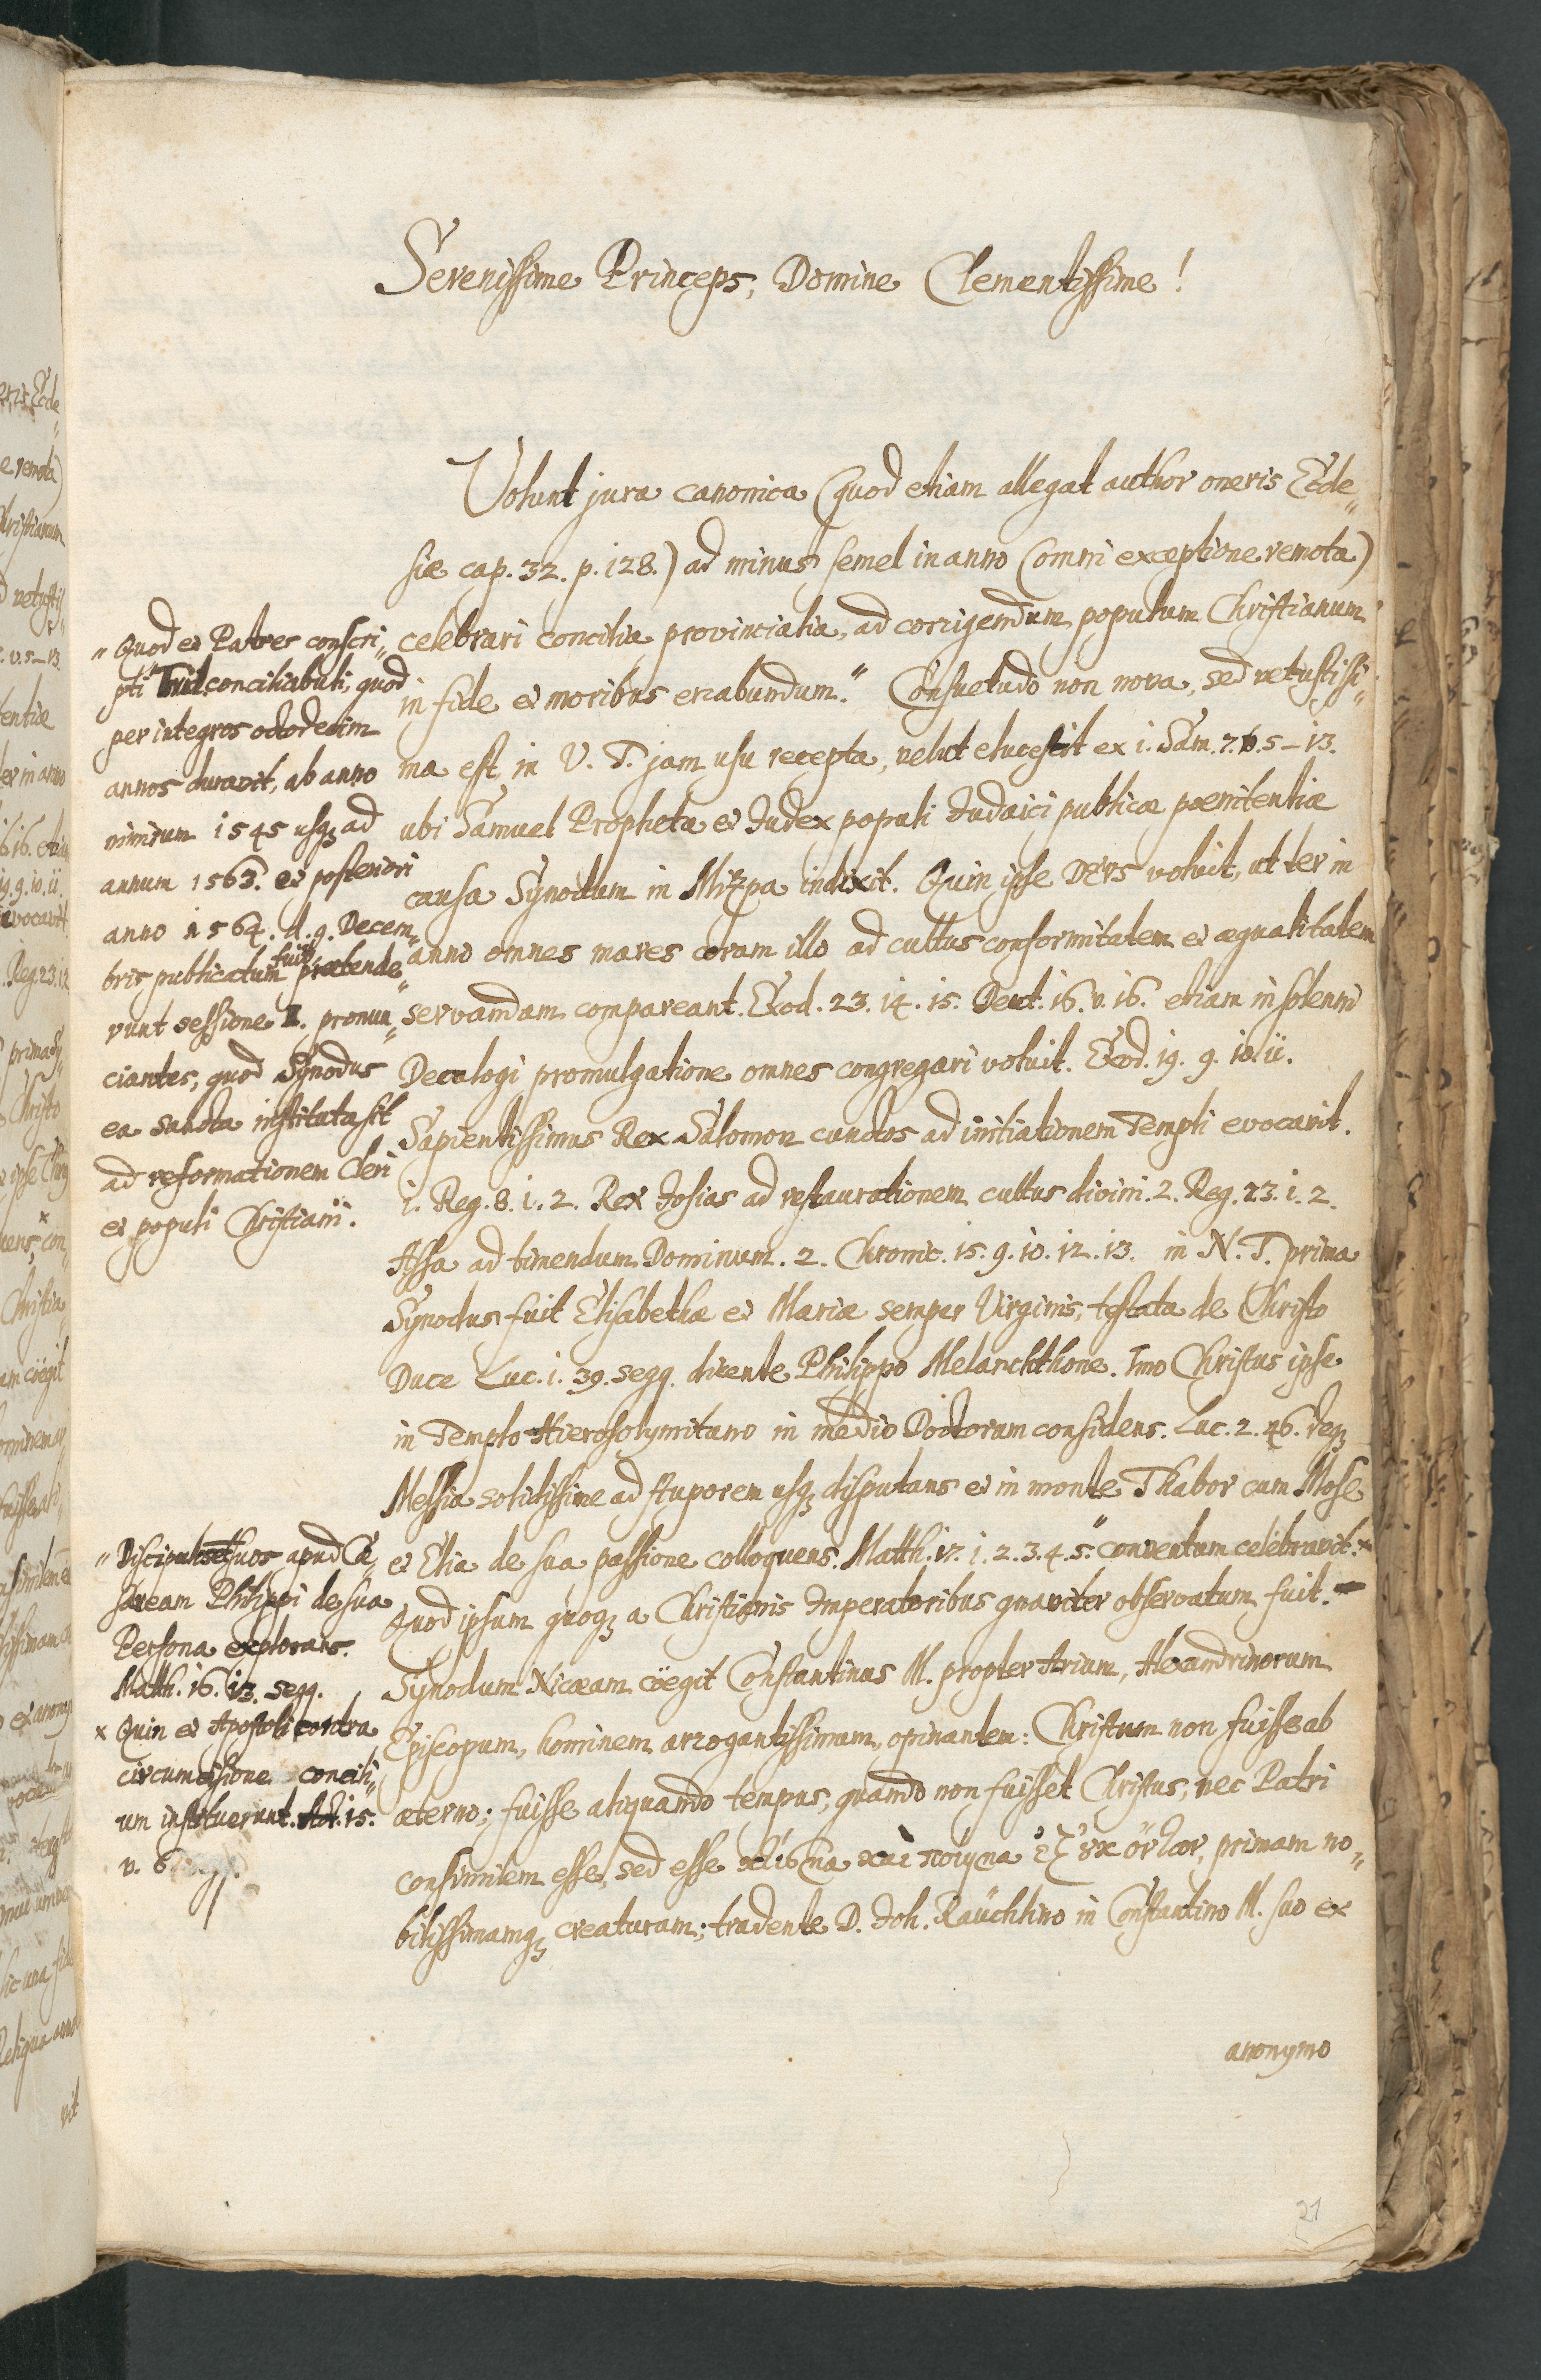 Serenissime Princeps, Domine Clementissime!
Volunt jura canonica (quod etiam allegat author oneris Eccle„
siæ cap. 32. p. 128.) ad minus semel in anno (omni exceptione remota)
celebrari concilia provincialia, ad corrigendum populum Christianum
in fide et moribus errabundum.“ Consuetudo non nova, sed vetustissi„
ma est, in V. T. jam usu recepta, velut elucescit ex 1. Sam. 7. v. 5–13.
ubi Samuel Propheta et Judex populi Judaici publicæ pœnitentiæ
causa Synodum in Mizpa indixit. Quin ipse DEVS voluit, ut ter in
anno omnes mares coram illo ad cultus conformitatem et æqualitatem
servandam compareant. Exod. 23. 14. 15. Deut. 16. v. 16. etiam in solenni
Decalogi promulgatione omnes congregari voluit. Exod. 19. 9. 10. 11.
Sapientissimus Rex Salomon cunctos ad initiationem Templi evocavit.
1. Reg. 8. 1. 2. Rex Josias ad restaurationem cultus divini. 2. Reg. 23. 1. 2.
Assa ad timendum Dominum. 2. Chronic. 15. 9. 10. 12. 13. in N. T. prima
Synodus fuit Elisabethæ et Mariæ semper Virginis, testata de Christo
Duce Luc. 1. 39. seqq. dicente Philippo Melanchthone. Imo Christus ipse
in Templo Hierosolymitano in medio Doctorum considens. Luc. 2. 46. deq;
Messia solidissime ad stuporem usq; disputans et in monte Thabor cum Mose
et Elia de sua passione colloquens. Matth. 17. 1. 2. 3. 4. 5.“ conventum celebravit.×
Quod ipsum quoq; a Christianis Imperatoribus gnaviter observatum fuit.
Synodum Nicæam cöegit Constantinus M. propter Arium, Alexandrinorum
Episcopum, hominem arrogantissimum, opinantem: Christum non fuisse ab
æterno; fuisse aliquando tempus, quando non fuisset Christus, nec Patri
consimilem esse, sed esse κτίσμα καὶ ποίημα ἐξ ȣκ ὄντων, primam no„
bilissimamq; creaturam; tradente D. Joh. Raüchlino in Constantino M. suo ex
anonymo
„ Quod et Patres conscri„
pti Trid. conciliabuli, quod
per integros octodecim
annos duravit, ab anno
nimirum 1545 usq; ad
annum 1563. et posteriori
anno 1564. d. 9. Decem„
bris publicatum fuit prætende„
runt sessione II. pronun„
ciantes, quod Synodus
ea sancta instituta sit
ad reformationem Cleri
et populi Christiani.
„ Discipulos et suos apud Cæ„
saream Philippi de sua
Persona explorans.
Matth. 16. 13. seqq.
× Quin et Apostoli contra
circumcisionem concili„
um instituerunt. Act. 15.
v. 6
21